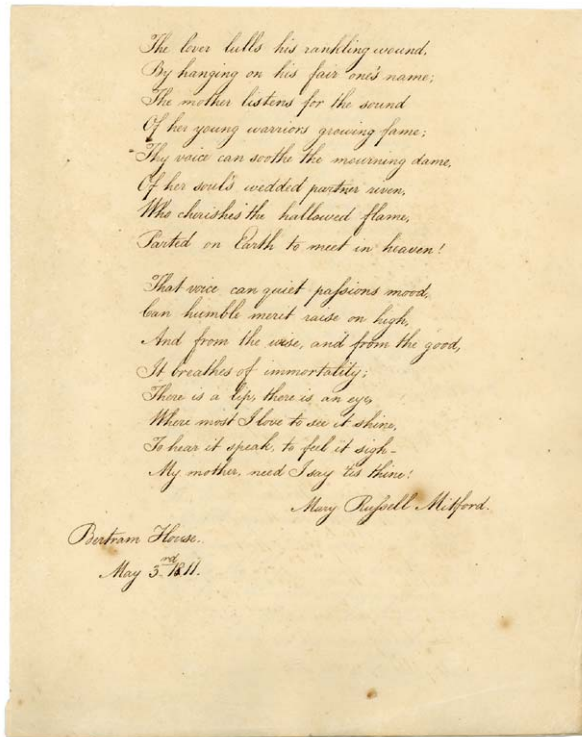 The lover lulls his rankling wound,
By hanging on his fair one's name;
The mother listens for the sound
Of her young warriors growing fame;
Thy voice can soothe the mourning dame,
Of her soul's wedded partner riven,
Who cherishes the hallowed flame,
Parted on Earth to meet in heaven!
That voice can quiet passions mood,
Can humble merit raise on high,
And from the wise, and from the good,
It breathes of immortality;
There is a lip, there is an eye,
Where most I love to see it shine,
To hear it speak, to feel it sigh–
My mother, need I say 'tis thine!
Mary Russell Mitford.
Bertram House.
May 3rd 1811.